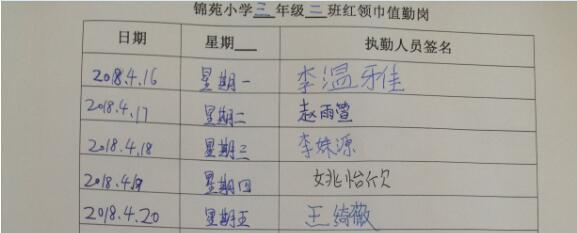 锦苑小学三年级二班红领巾值勤岗
日期 星期 执勤人员签名
2018.4.16 星期一 李温雅
2018.4.17 星期二 赵雨萱
2018.4.18 星期三 李姝源
2018.4.19 星期四 姚怡欣
2018.4.20 星期五 王绮薇